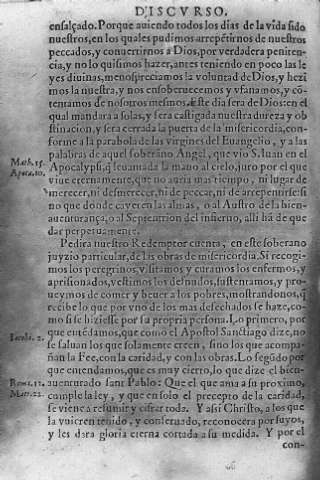 DISCVRSO.
ensalçado. Porque auiendo todos los dias de la vida sido
nuestros, en los quales pudimos arrepetirnos de nuestros
peccados, y conuertirnos a Dios, por verdadera peniten
cia, y no lo quisimos hazer, antes teniendo en poco las le
yes diuinas, menospreciamos la voluntad de Dios, y hezi
mos la nuestra, y nos ensoberuecemos y vfanamos, y cõ
tentamos de nosotros mesmos. Este dia sera de Dios: en el
qual mandara a solas, y sera castigada nuestra dureza y ob
stinacion, y sera cerrada la puerta de la misericordia, con-
forme a la parabola de las virgines del Euangelio, y a las
palabras de aquel soberano Angel, que vio S. Iuan en el
Apocalypsi, q̃ leuantada la mano al cielo, juro por el que
viue eternamente, que no auria mas tiempo, ni lugar de
merecer, ni desmerecer, ni de peccar, ni de arrepentirse: si
no que donde cayeren las almas, o al Austro de la bien-
auenturança, o al Septentrion del infierno, alli há de que
dar perpetuamente.
Pedira nuestro Redemptor cuenta, en este soberano
juyzio particular, de las obras de misericordia. Si recogi
mos los peregrinos, visitamos y curamos los enfermos, y
aprisionados, vestimos los desnudos, sustentamos, y pro
ueymos de comer y beuer a los pobres, mostrandonos, q̃
recibe lo que por vno de los mas desechados se haze, co-
mo si se hiziesse por sa propria persona. Lo primero, por
que entẽdamos, que como el Apostol Sanctiago dize, no
se saluan los que solamente creen, sino los que acompa-
ñan la Fee, con la caridad, y con las obras. Lo segũdo por
que entendamos, que es muy cierto, lo que dize el bien-
auenturado sant Pablo: Que el que ama a su proximo,
cumple la ley, y que en solo el precepto de la caridad,
se viene a resumir y cifrar toda. Y assi Christo, a los que
la vuieren tenido, y conseruado, reconocera por suyos,
y les dara gloria eterna cortada a su medida. Y por el
con-
Math. 25.
Apoca. 10.
Iacobi. 2.
Roma. 13.
Matt. 22.